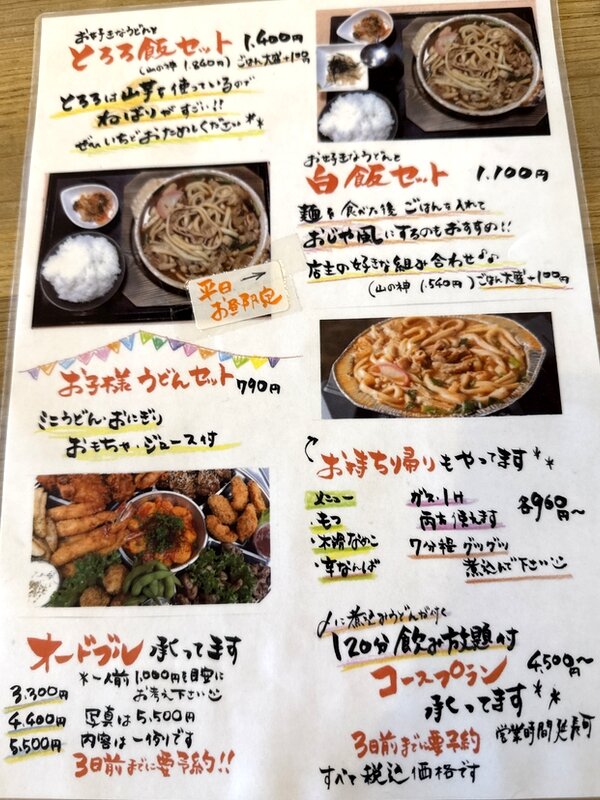 お好きなうどんと
とろろ飯セット 1.400円
(山の神 1.840円) ごはん大盛+100円
とろろは山芋を使っているので
ねばりがすごい!!
ぜひいちどおためしください**
お好きなうどんと
白飯セット 1.100円
麺を食べた後 ごはんを入れて
おじや風にするのもおすすめ!!
店主の好きな組み合わせ♪♪
(山の神 1.540円) ごはん大盛+100円
平日→
お昼限定
お子様うどんセット 790円
ミニうどん・おにぎり
おもちゃ・ジュース付
お持ち帰りもやってます**
メニュー
・もつ
・木勝なめこ
・辛なんば
ガス・IH
両方使えます
7分程グツグツ
煮込んで下さい
各960円~
オードブル承ってます
*一人前1,000円を目安に
お考え下さい
3.300円
4.400円
5.500円
写真は5,500円
内容は一例です
3日前までに要予約!!
〆に煮込みうどんが付く
120分飲み放題付
コースプラン 4,500~
承ってます**
3日前までに要予約
営業時間延長可
すべて税込価格です